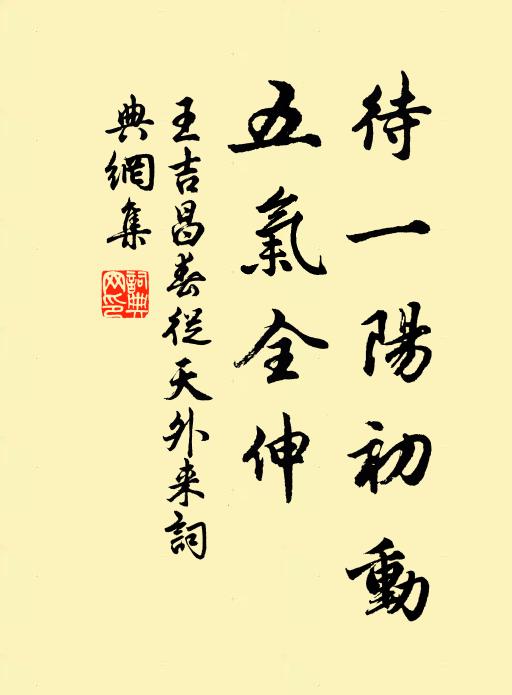 待一陽初動
五氣全伸
王吉昌春從天外来詞
典網集
詞典網印